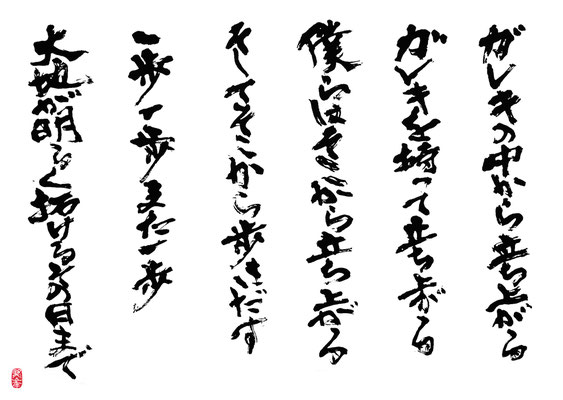 ガレキの中から立ち上がる
ガレキを持って立ち上がる
僕らはそこから立ち上がる
そしてそこから歩きだす
一歩一歩また一歩
大地が明るく拓けるその日まで